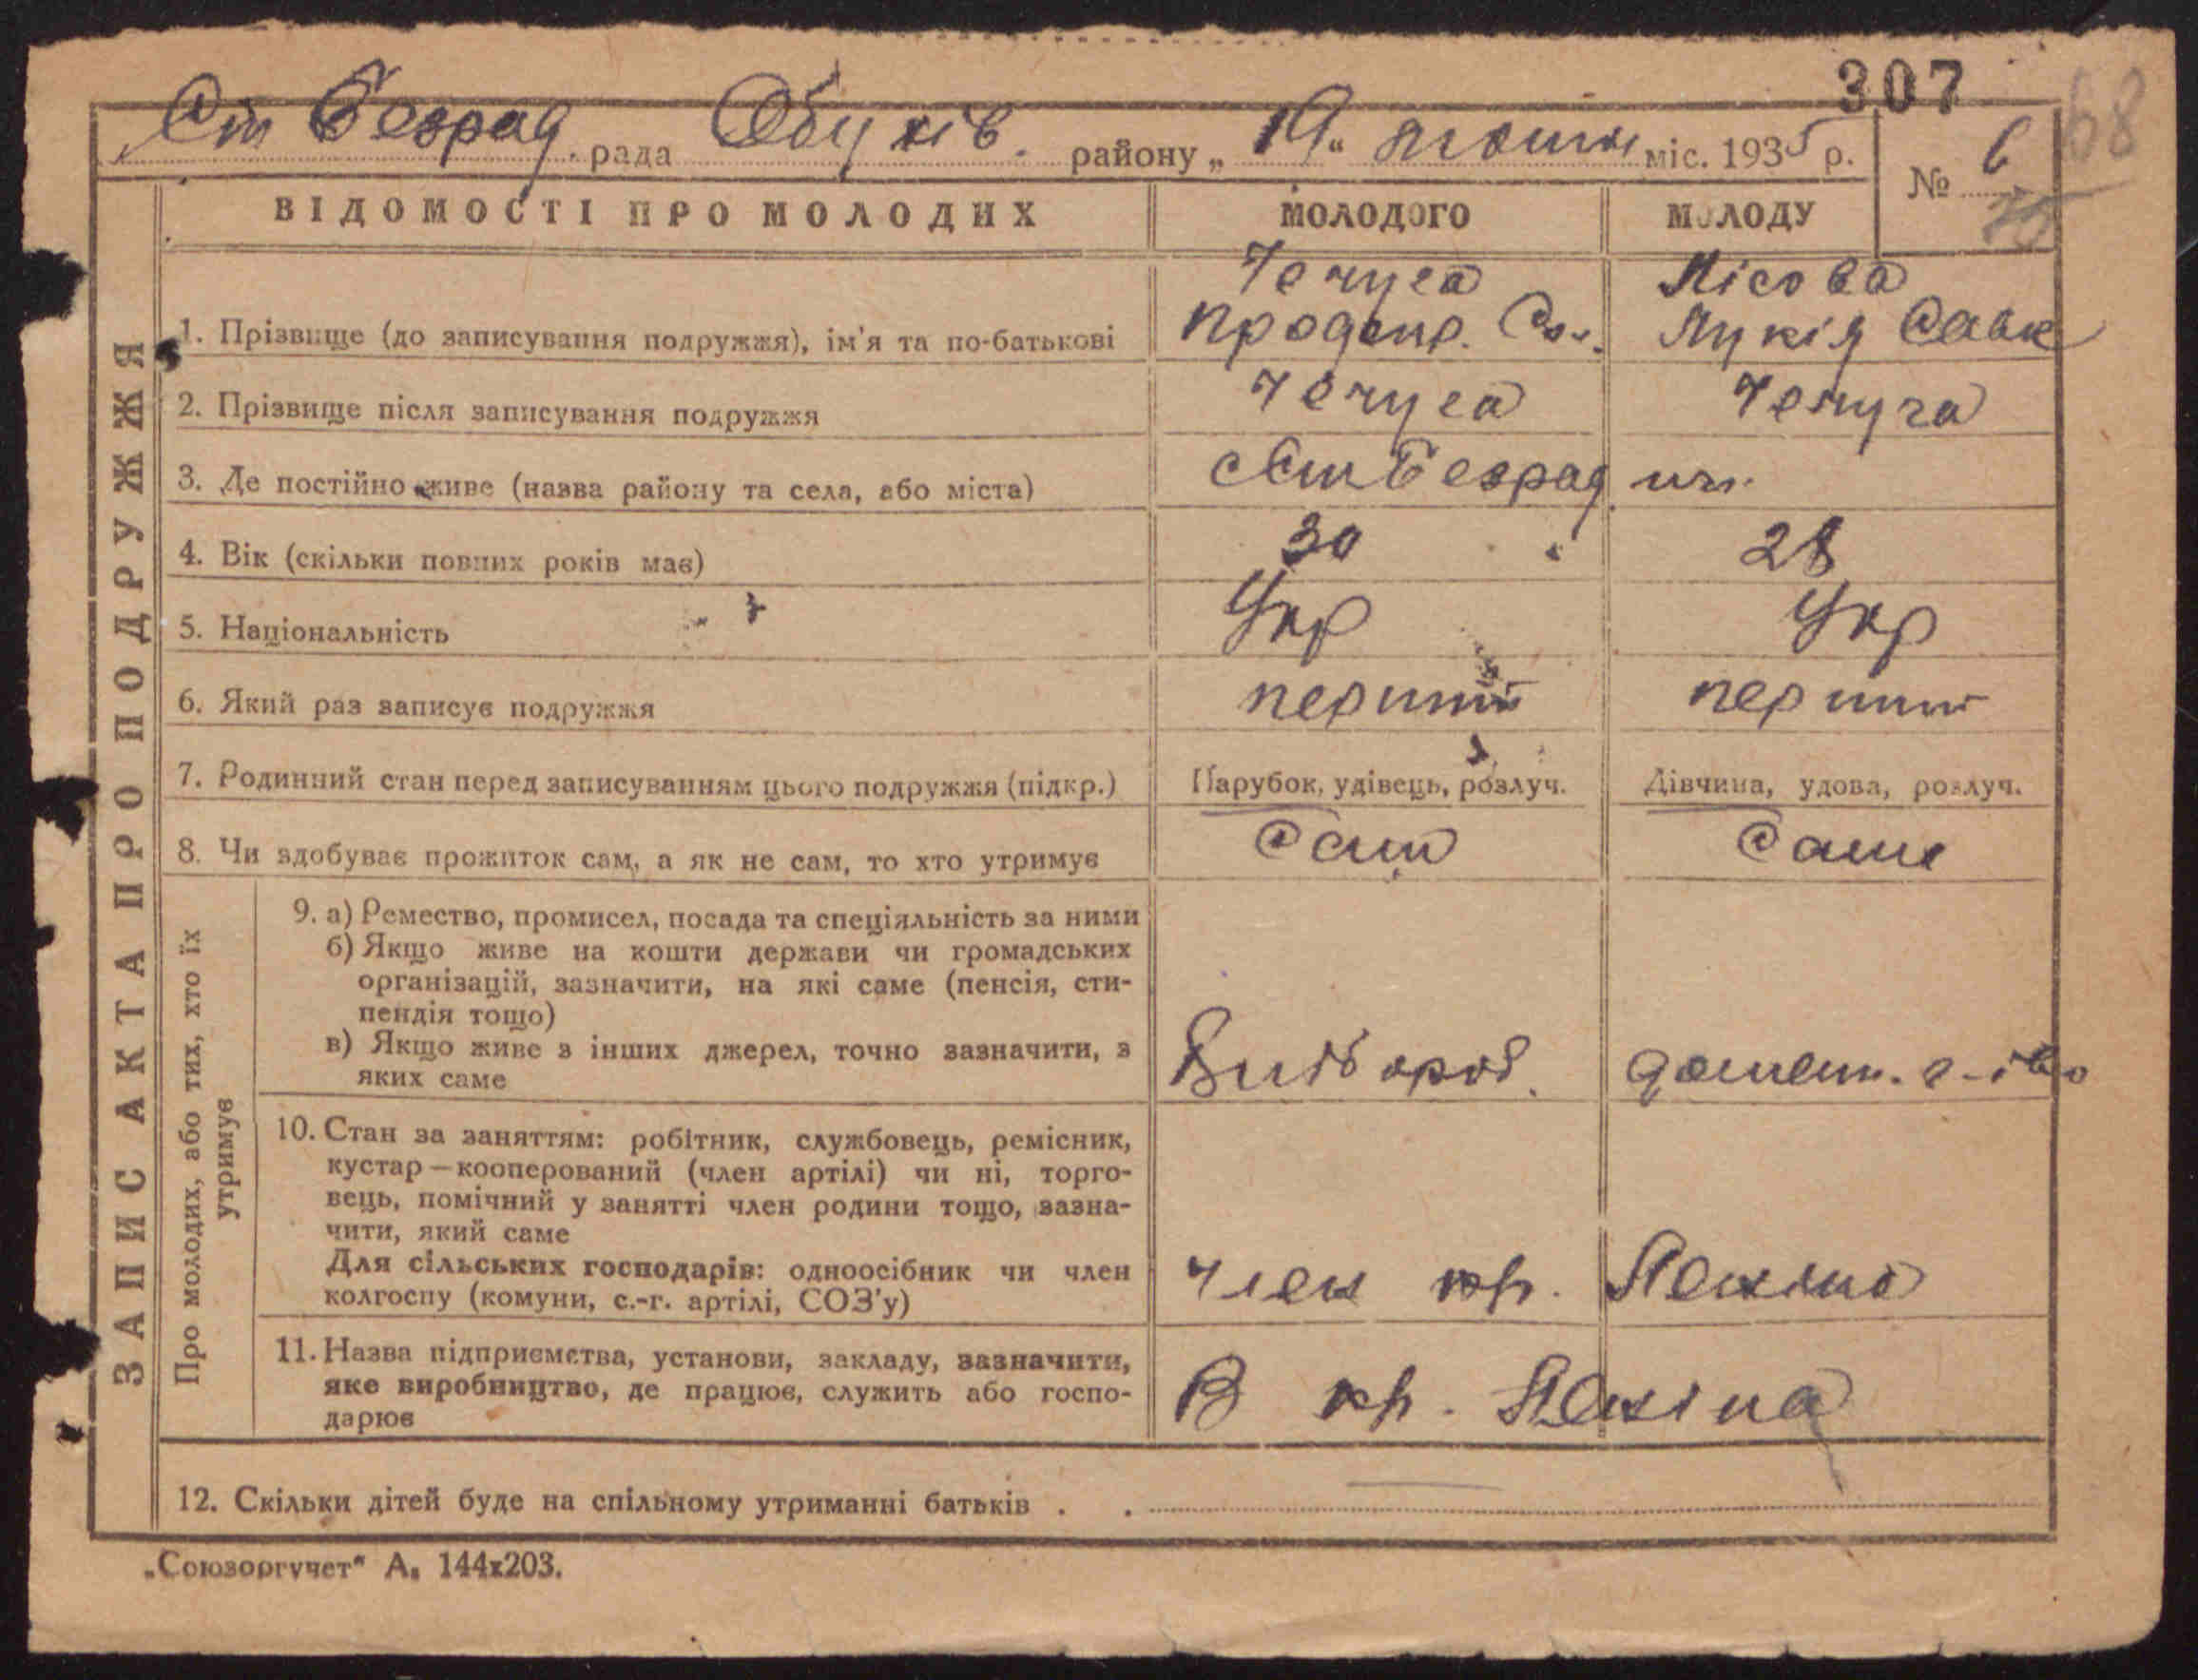 307
68
Ст Безрад. рада Обухів. району „19" лютого міс. 1935 р.
№ 6
ВІДОМОСТІ ПРО МОЛОДИХ
МОЛОДОГО
МОЛОДУ
ЗАПИС АКТА ПРО ПОДРУЖЖЯ
1. Прізвище (до записування подружжя), ім'я та по-батькові
Чечуга
Лісова
Лукія Савк
2. Прізвище після записування подружжя
Чечуга
Чечуга
3. Де постійно живе (назва району та села, або міста)
Ст Безрадичі.
4. Вік (скільки повних років має)
30
28
5. Національність
Укр
Укр
6. Який раз записує подружжя
перший
перший
7. Родинний стан перед записуванням цього подружжя (підкр.)
Парубок, удівець, розлуч.
Дівчина, удова, розлуч.
8. Чи здобуває прожиток сам, а як не сам, то хто утримує
Сам
Сама
Про молодих, або тих, хто їх
утримує
9. а) Ремество, промисел, посада та спеціяльність за ними
б) Якщо живе на кошти держави чи громадських
організацій, зазначити, на які саме (пенсія, сти-
пендія тощо)
в) Якщо живе з інших джерел, точно зазначити, з
яких саме
10. Стан за заняттям: робітник, службовець, ремісник,
кустар—кооперований (член артілі) чи ні, торго-
вець, помічний у занятті член родини тощо, зазна-
чити, який саме
Для сільських господарів: одноосібник чи член
колгоспу (комуни, с.-г. артілі, СОЗ'у)
член кр. Леніна
11. Назва підприємства, установи, закладу, зазначити,
яке виробництво, де працює, служить або госпо-
дарює
В кр. Леніна
12. Скільки дітей буде на спільному утриманні батьків . .
„Союзоргучет" А₅ 144х203.